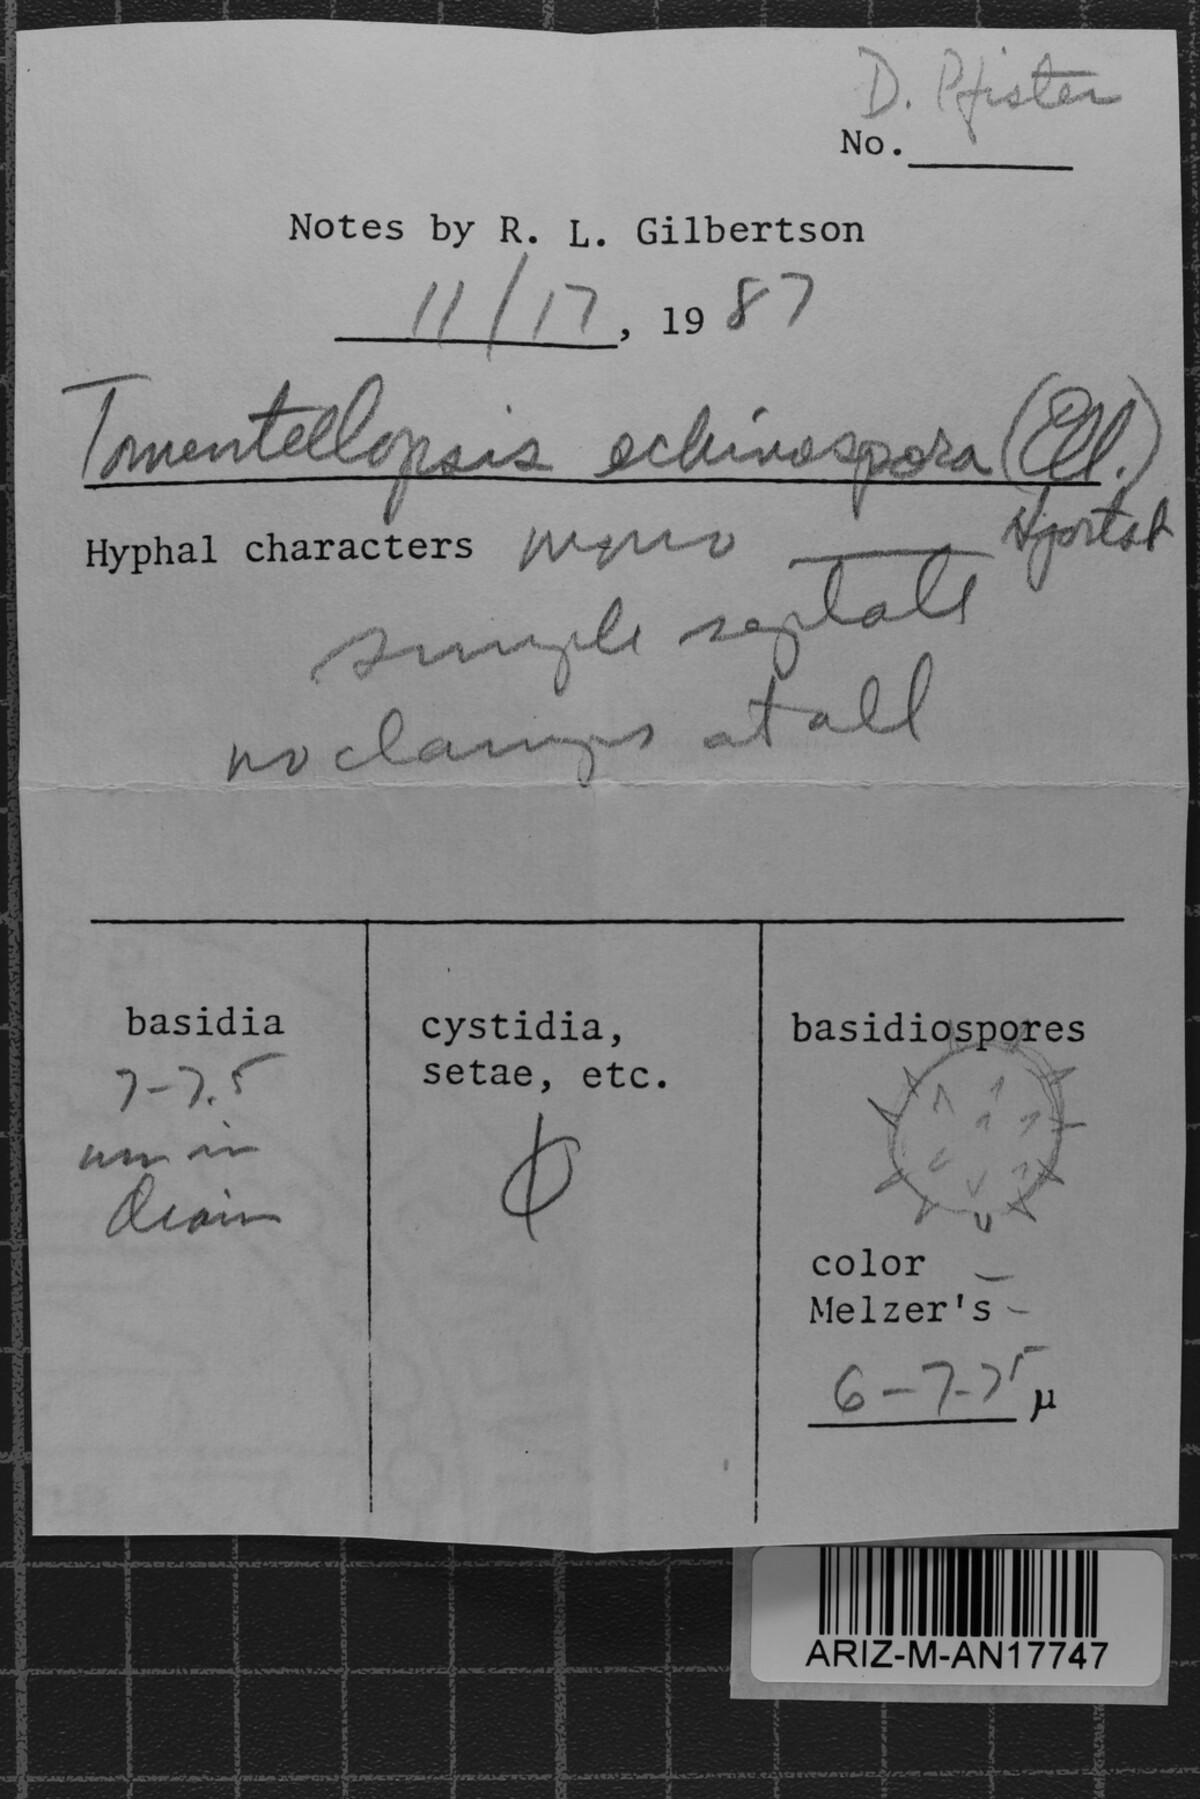 D. Pfister
No.
Notes by R. L. Gilbertson
11/17, 1987
Tomentellopsis echinospora (Ell.)
Hjortst
Hyphal characters mono
simple septate
no clamps at all
basidia
7-7.5
um in
diam
cystidia,
setae, etc.
basidiospores
color —
Melzer's –
6-7-7.5 μ
ARIZ-M-AN17747